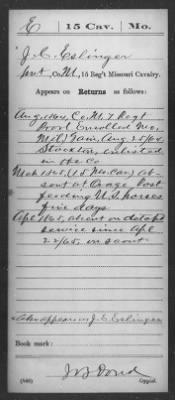 E 15 Cav. Mo.
J. C. Eslinger
Pvt, Co. H, 15 Reg't Missouri Cavalry.
Appears on Returns as follows:
Aug. 1864, Co. H, 7 Regt
Prov. Enrolled Mo.
Mil. Gain, Aug 25/64
Stockton, enlisted
in the Co
Mch 1865, (15 Mo. Cav.) ab-
sent at Osage Post
feeding U.S. horses
five days
Apl 1865, absent on detach'd
service since Apl
22/65, in scout
Also appears as J. E. Eslinger
Book mark:
(546) Copyist.